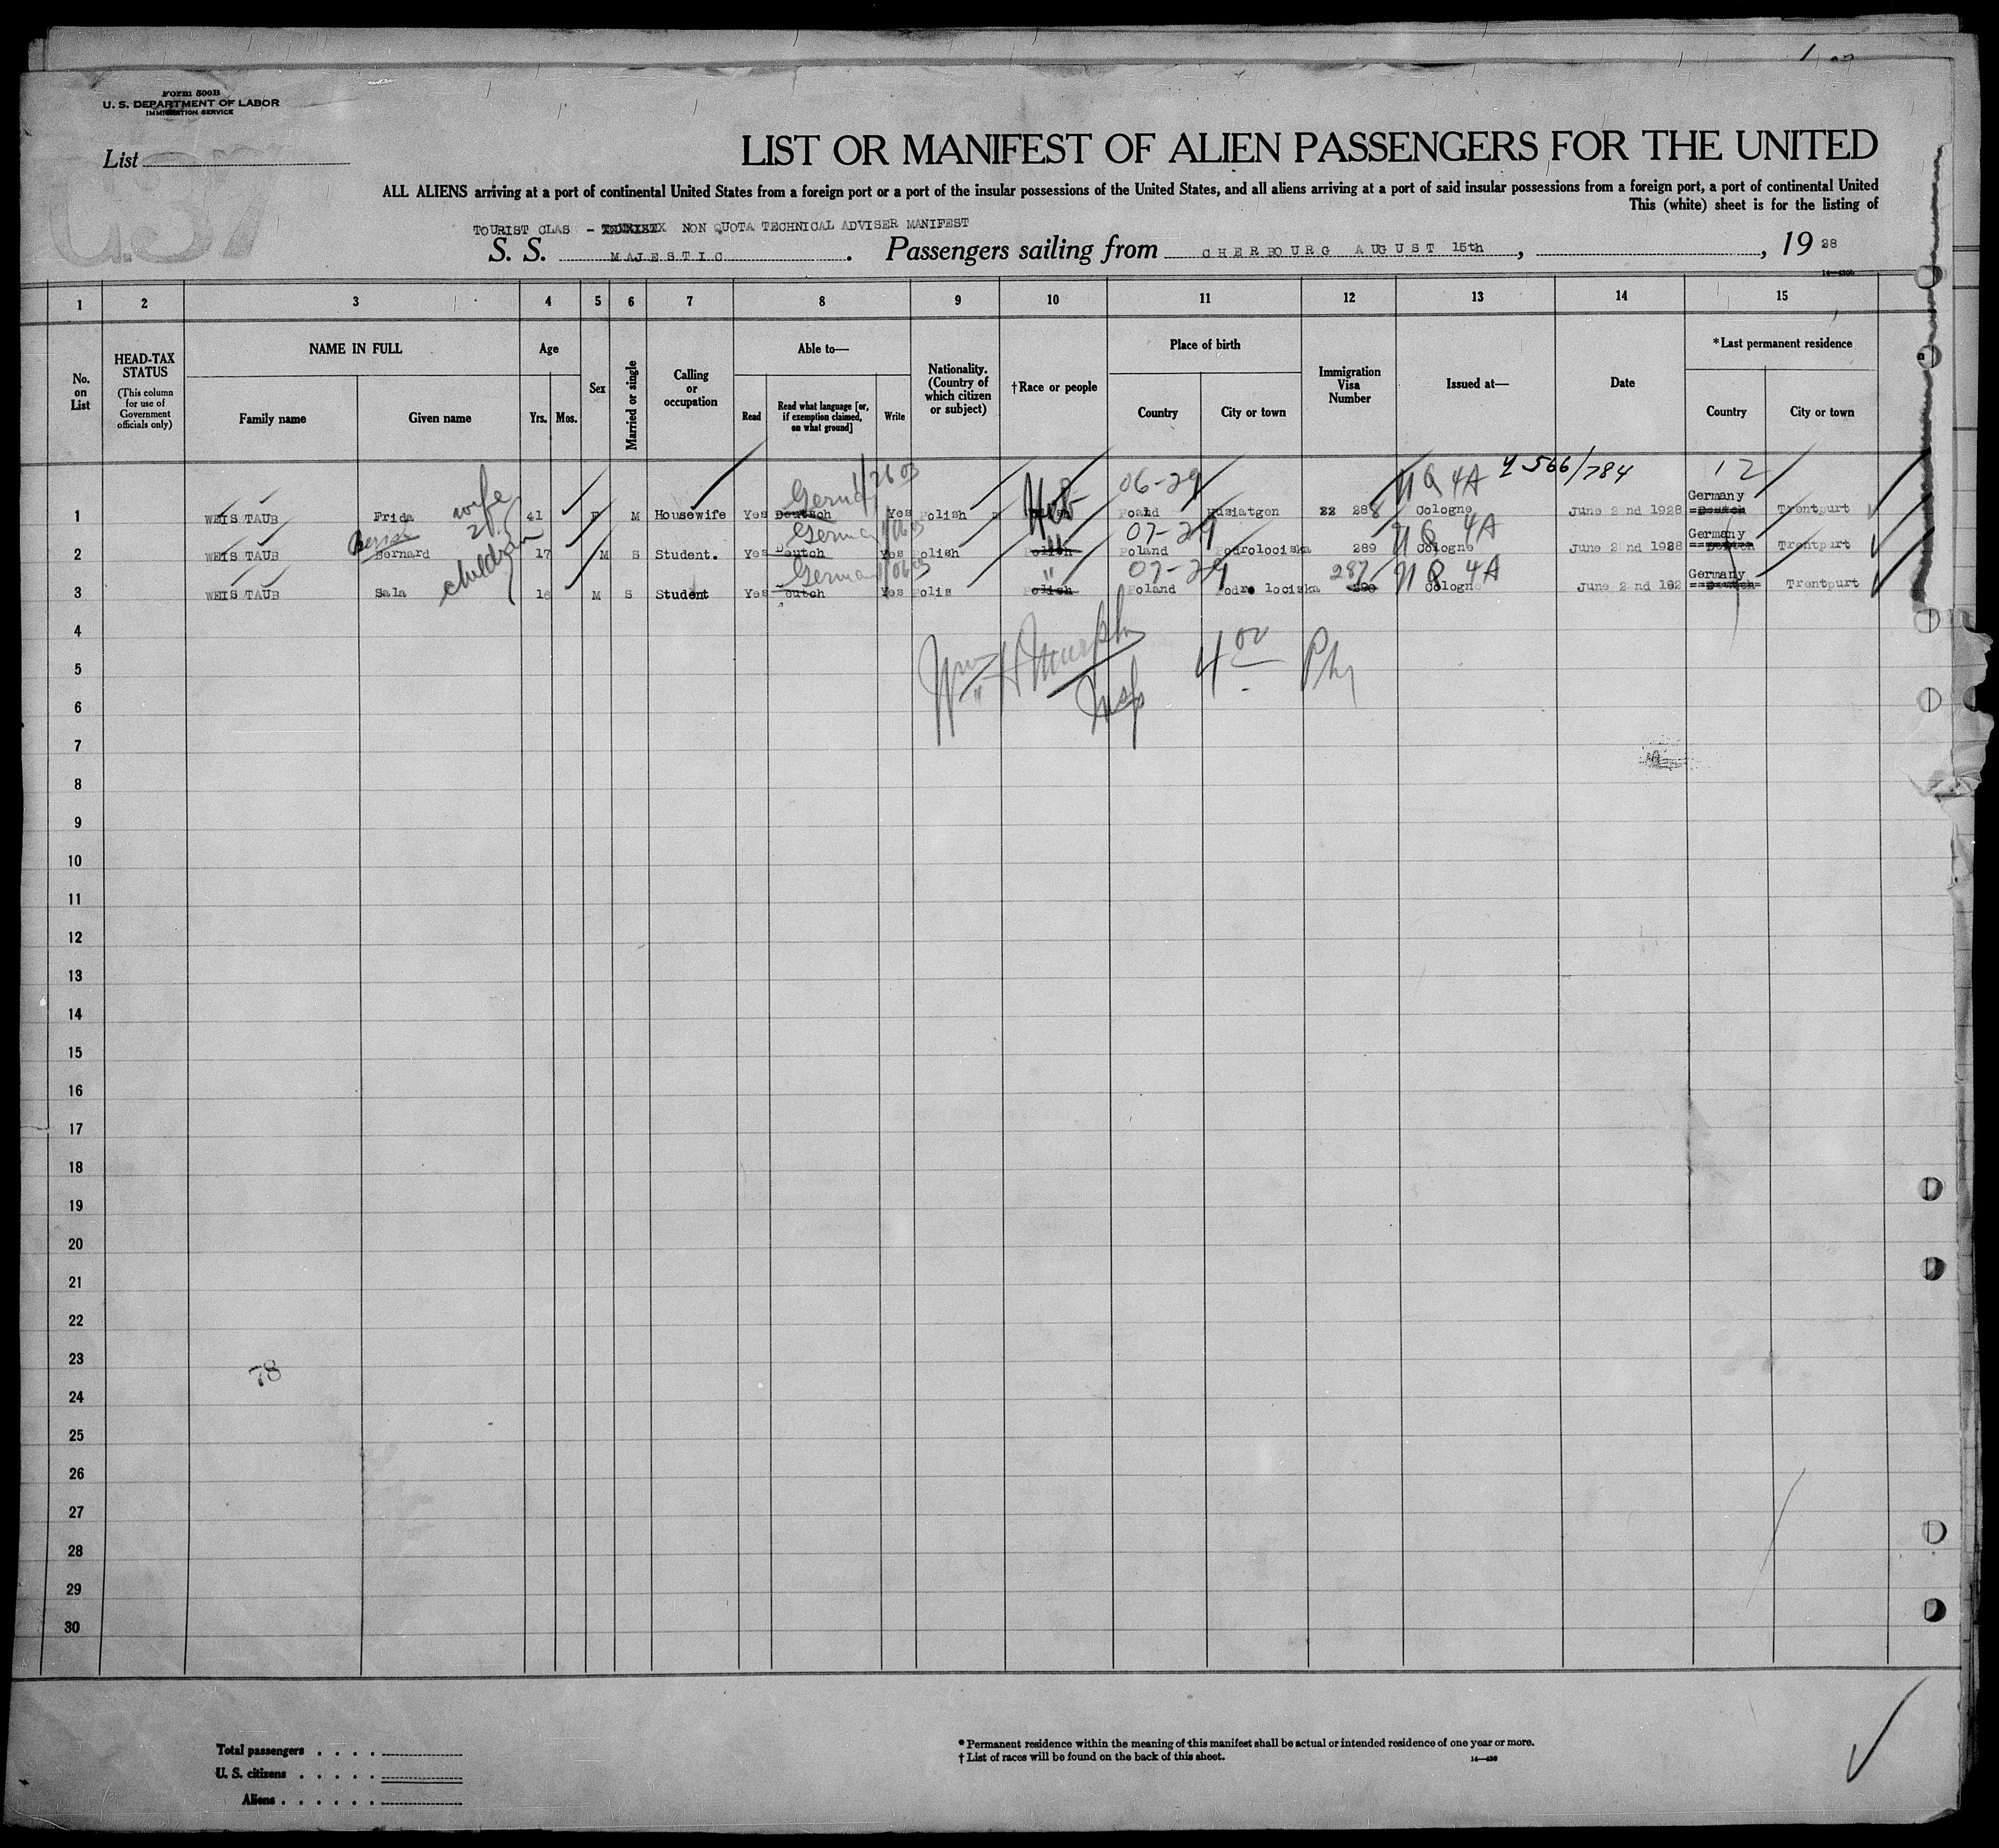 Form 500B
U. S. DEPARTMENT OF LABOR
IMMIGRATION SERVICE
List
LIST OR MANIFEST OF ALIEN PASSENGERS FOR THE UNITED
ALL ALIENS arriving at a port of continental United States from a foreign port or a port of the insular possessions of the United States, and all aliens arriving at a port of said insular possessions from a foreign port, a port of continental United
This (white) sheet is for the listing of
TOURIST CLAS - NON QUOTA TECHNICAL ADVISER MANIFEST
S. S. MAJESTIC. Passengers sailing from CHERBOURG AUGUST 15th, , 19 28
1 2 3 4 5 6 7 8 9 10 11 12 13 14 15
No. on List
HEAD-TAX STATUS
(This column for use of Government officials only)
NAME IN FULL
Family name Given name
Age
Yrs. Mos.
Sex
Married or single
Calling or occupation
Able to—
Read Read what language [or, if exemption claimed, on what ground] Write
Nationality. (Country of which citizen or subject)
†Race or people
Place of birth
Country City or town
Immigration Visa Number
Issued at—
Date
*Last permanent residence
Country City or town
4 566/784 12
1 WEIS TAUB Frida wife 41 F M Housewife Yes Deutsch German Yes Polish Heb 06-29 Poand Husiatgen 288 NQ 4A Cologne June 2 nd 1928 Germany Trentpurt
2 WEIS TAUB Bernard 2 17 M S Student. Yes Deutch German Yes Polish Polish " 07-29 Poland Podrolociska 289 NQ 4A Cologne June 2 nd 1928 Germany Trentpurt
3 WEIS TAUB Sala children 16 M S Student Yes Deutch German Yes Polis Polish " 07-29 Poland Podro lociska 287 290 NQ 4A Cologne June 2 nd 192 Germany Trentpurt
4
Wm H Murphy 4 00 Phy
5
Insp
6
7
8
9
10
11
12
13
14
15
16
17
18
19
20
21
22
23
78
24
25
26
27
28
29
30
Total passengers
U. S. citizens
Aliens
* Permanent residence within the meaning of this manifest shall be actual or intended residence of one year or more.
† List of races will be found on the back of this sheet.